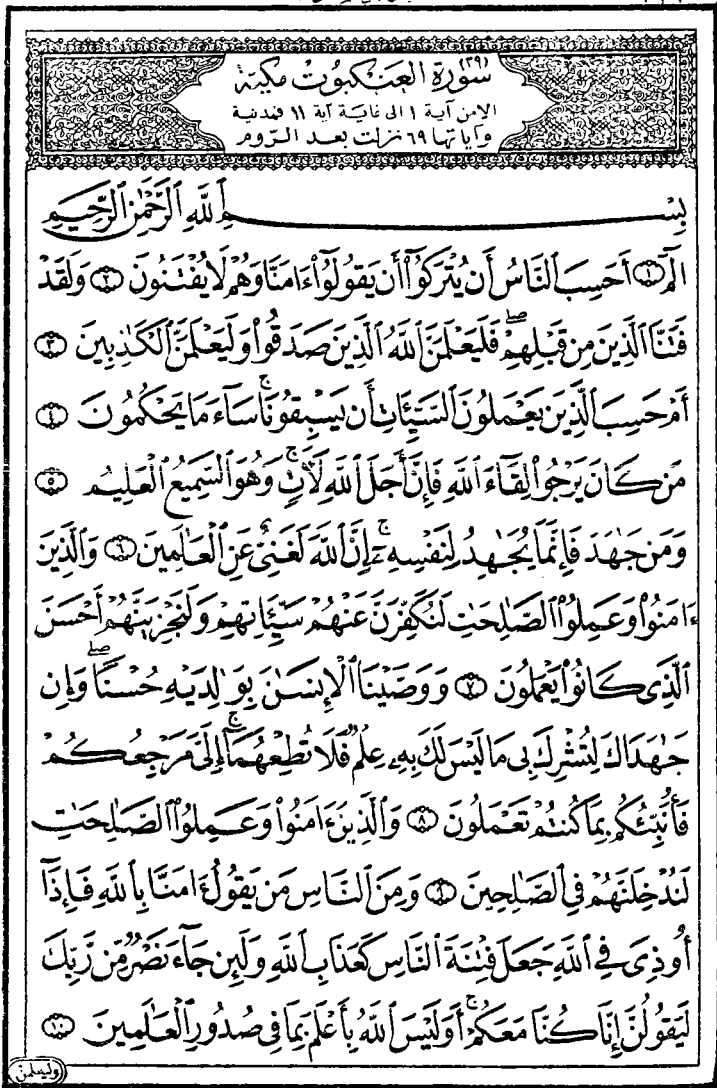 (٢٩) سُورَة العَنكبُوت مَكيّة
الا من آية ١ الى غاية آية ١١ فمدنية
وآياتها ٦٩ نزلت بعد الروم
بِسْمِ ٱللَّهِ ٱلرَّحْمَٰنِ ٱلرَّحِيمِ
الٓمٓ ١ أَحَسِبَ ٱلنَّاسُ أَن يُتْرَكُوٓا۟ أَن يَقُولُوٓا۟ ءَامَنَّا وَهُمْ لَا يُفْتَنُونَ ٢ وَلَقَدْ
فَتَنَّا ٱلَّذِينَ مِن قَبْلِهِمْ ۖ فَلَيَعْلَمَنَّ ٱللَّهُ ٱلَّذِينَ صَدَقُوا۟ وَلَيَعْلَمَنَّ ٱلْكَٰذِبِينَ ٣
أَمْ حَسِبَ ٱلَّذِينَ يَعْمَلُونَ ٱلسَّيِّـَٔاتِ أَن يَسْبِقُونَا ۚ سَآءَ مَا يَحْكُمُونَ ٤
مَن كَانَ يَرْجُوا۟ لِقَآءَ ٱللَّهِ فَإِنَّ أَجَلَ ٱللَّهِ لَـَٔاتٍ ۚ وَهُوَ ٱلسَّمِيعُ ٱلْعَلِيمُ ٥
وَمَن جَٰهَدَ فَإِنَّمَا يُجَٰهِدُ لِنَفْسِهِۦٓ ۚ إِنَّ ٱللَّهَ لَغَنِىٌّ عَنِ ٱلْعَٰلَمِينَ ٦ وَٱلَّذِينَ
ءَامَنُوا۟ وَعَمِلُوا۟ ٱلصَّٰلِحَٰتِ لَنُكَفِّرَنَّ عَنْهُمْ سَيِّـَٔاتِهِمْ وَلَنَجْزِيَنَّهُمْ أَحْسَنَ
ٱلَّذِى كَانُوا۟ يَعْمَلُونَ ٧ وَوَصَّيْنَا ٱلْإِنسَٰنَ بِوَٰلِدَيْهِ حُسْنًا ۖ وَإِن
جَٰهَدَاكَ لِتُشْرِكَ بِى مَا لَيْسَ لَكَ بِهِۦ عِلْمٌ فَلَا تُطِعْهُمَآ ۚ إِلَىَّ مَرْجِعُكُمْ
فَأُنَبِّئُكُم بِمَا كُنتُمْ تَعْمَلُونَ ٨ وَٱلَّذِينَ ءَامَنُوا۟ وَعَمِلُوا۟ ٱلصَّٰلِحَٰتِ
لَنُدْخِلَنَّهُمْ فِى ٱلصَّٰلِحِينَ ٩ وَمِنَ ٱلنَّاسِ مَن يَقُولُ ءَامَنَّا بِٱللَّهِ فَإِذَآ
أُوذِىَ فِى ٱللَّهِ جَعَلَ فِتْنَةَ ٱلنَّاسِ كَعَذَابِ ٱللَّهِ وَلَئِن جَآءَ نَصْرٌ مِّن رَّبِّكَ
لَيَقُولُنَّ إِنَّا كُنَّا مَعَكُمْ ۚ أَوَلَيْسَ ٱللَّهُ بِأَعْلَمَ بِمَا فِى صُدُورِ ٱلْعَٰلَمِينَ ١٠
وليعلمن